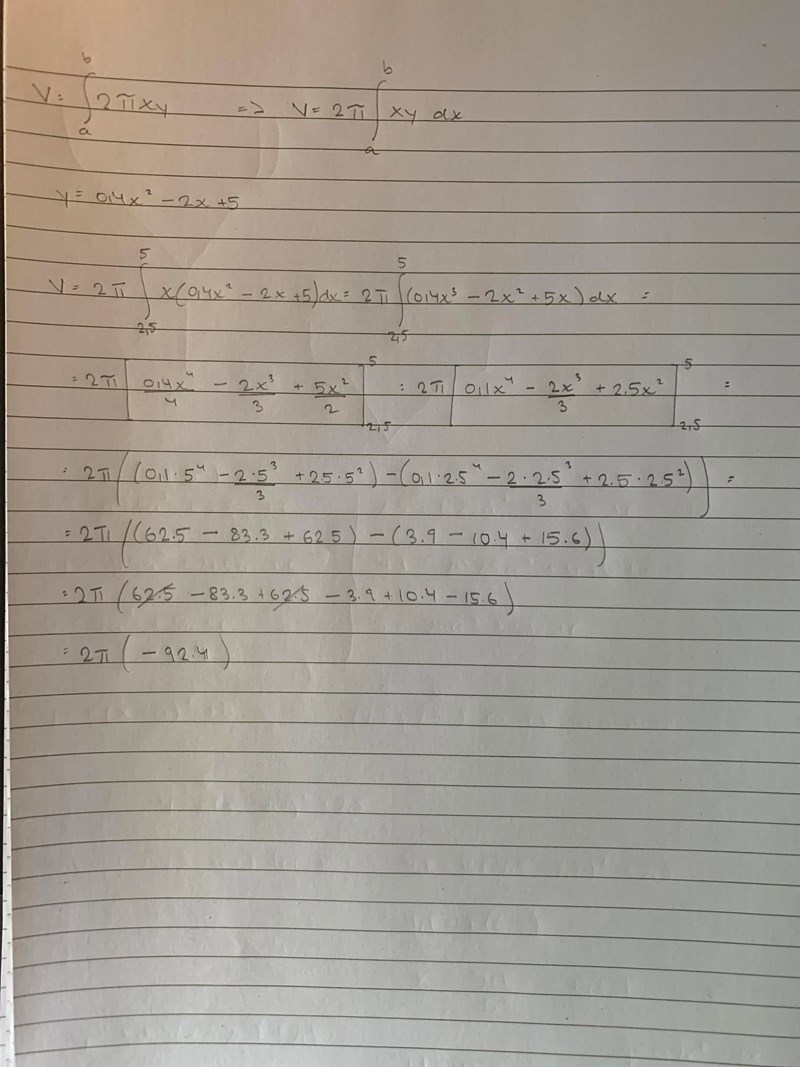 V = ∫_a^b 2πxy => V = 2π ∫_a^b xy dx
y = 0,4x² - 2x + 5
V = 2π ∫_{2,5}^5 x(0,4x² - 2x + 5)dx = 2π ∫_{2,5}^5 (0,4x³ - 2x² + 5x) dx =
= 2π [0,4x⁴/4 - 2x³/3 + 5x²/2]_{2,5}^5 = 2π [0,1x⁴ - 2x³/3 + 2,5x²]_{2,5}^5 =
= 2π ((0,1·5⁴ - 2·5³/3 + 2.5·5²) - (0,1·2.5⁴ - 2·2.5³/3 + 2.5·2.5²)) =
= 2π ((62.5 - 83.3 + 62.5) - (3.9 - 10.4 + 15.6))
= 2π (62.5 - 83.3 + 62.5 - 3.9 + 10.4 - 15.6)
= 2π (-92.4)